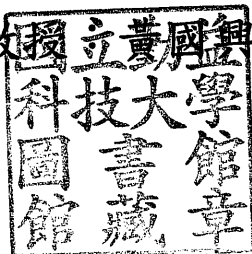 授立黃國興
科技大學
圖書館
館藏章